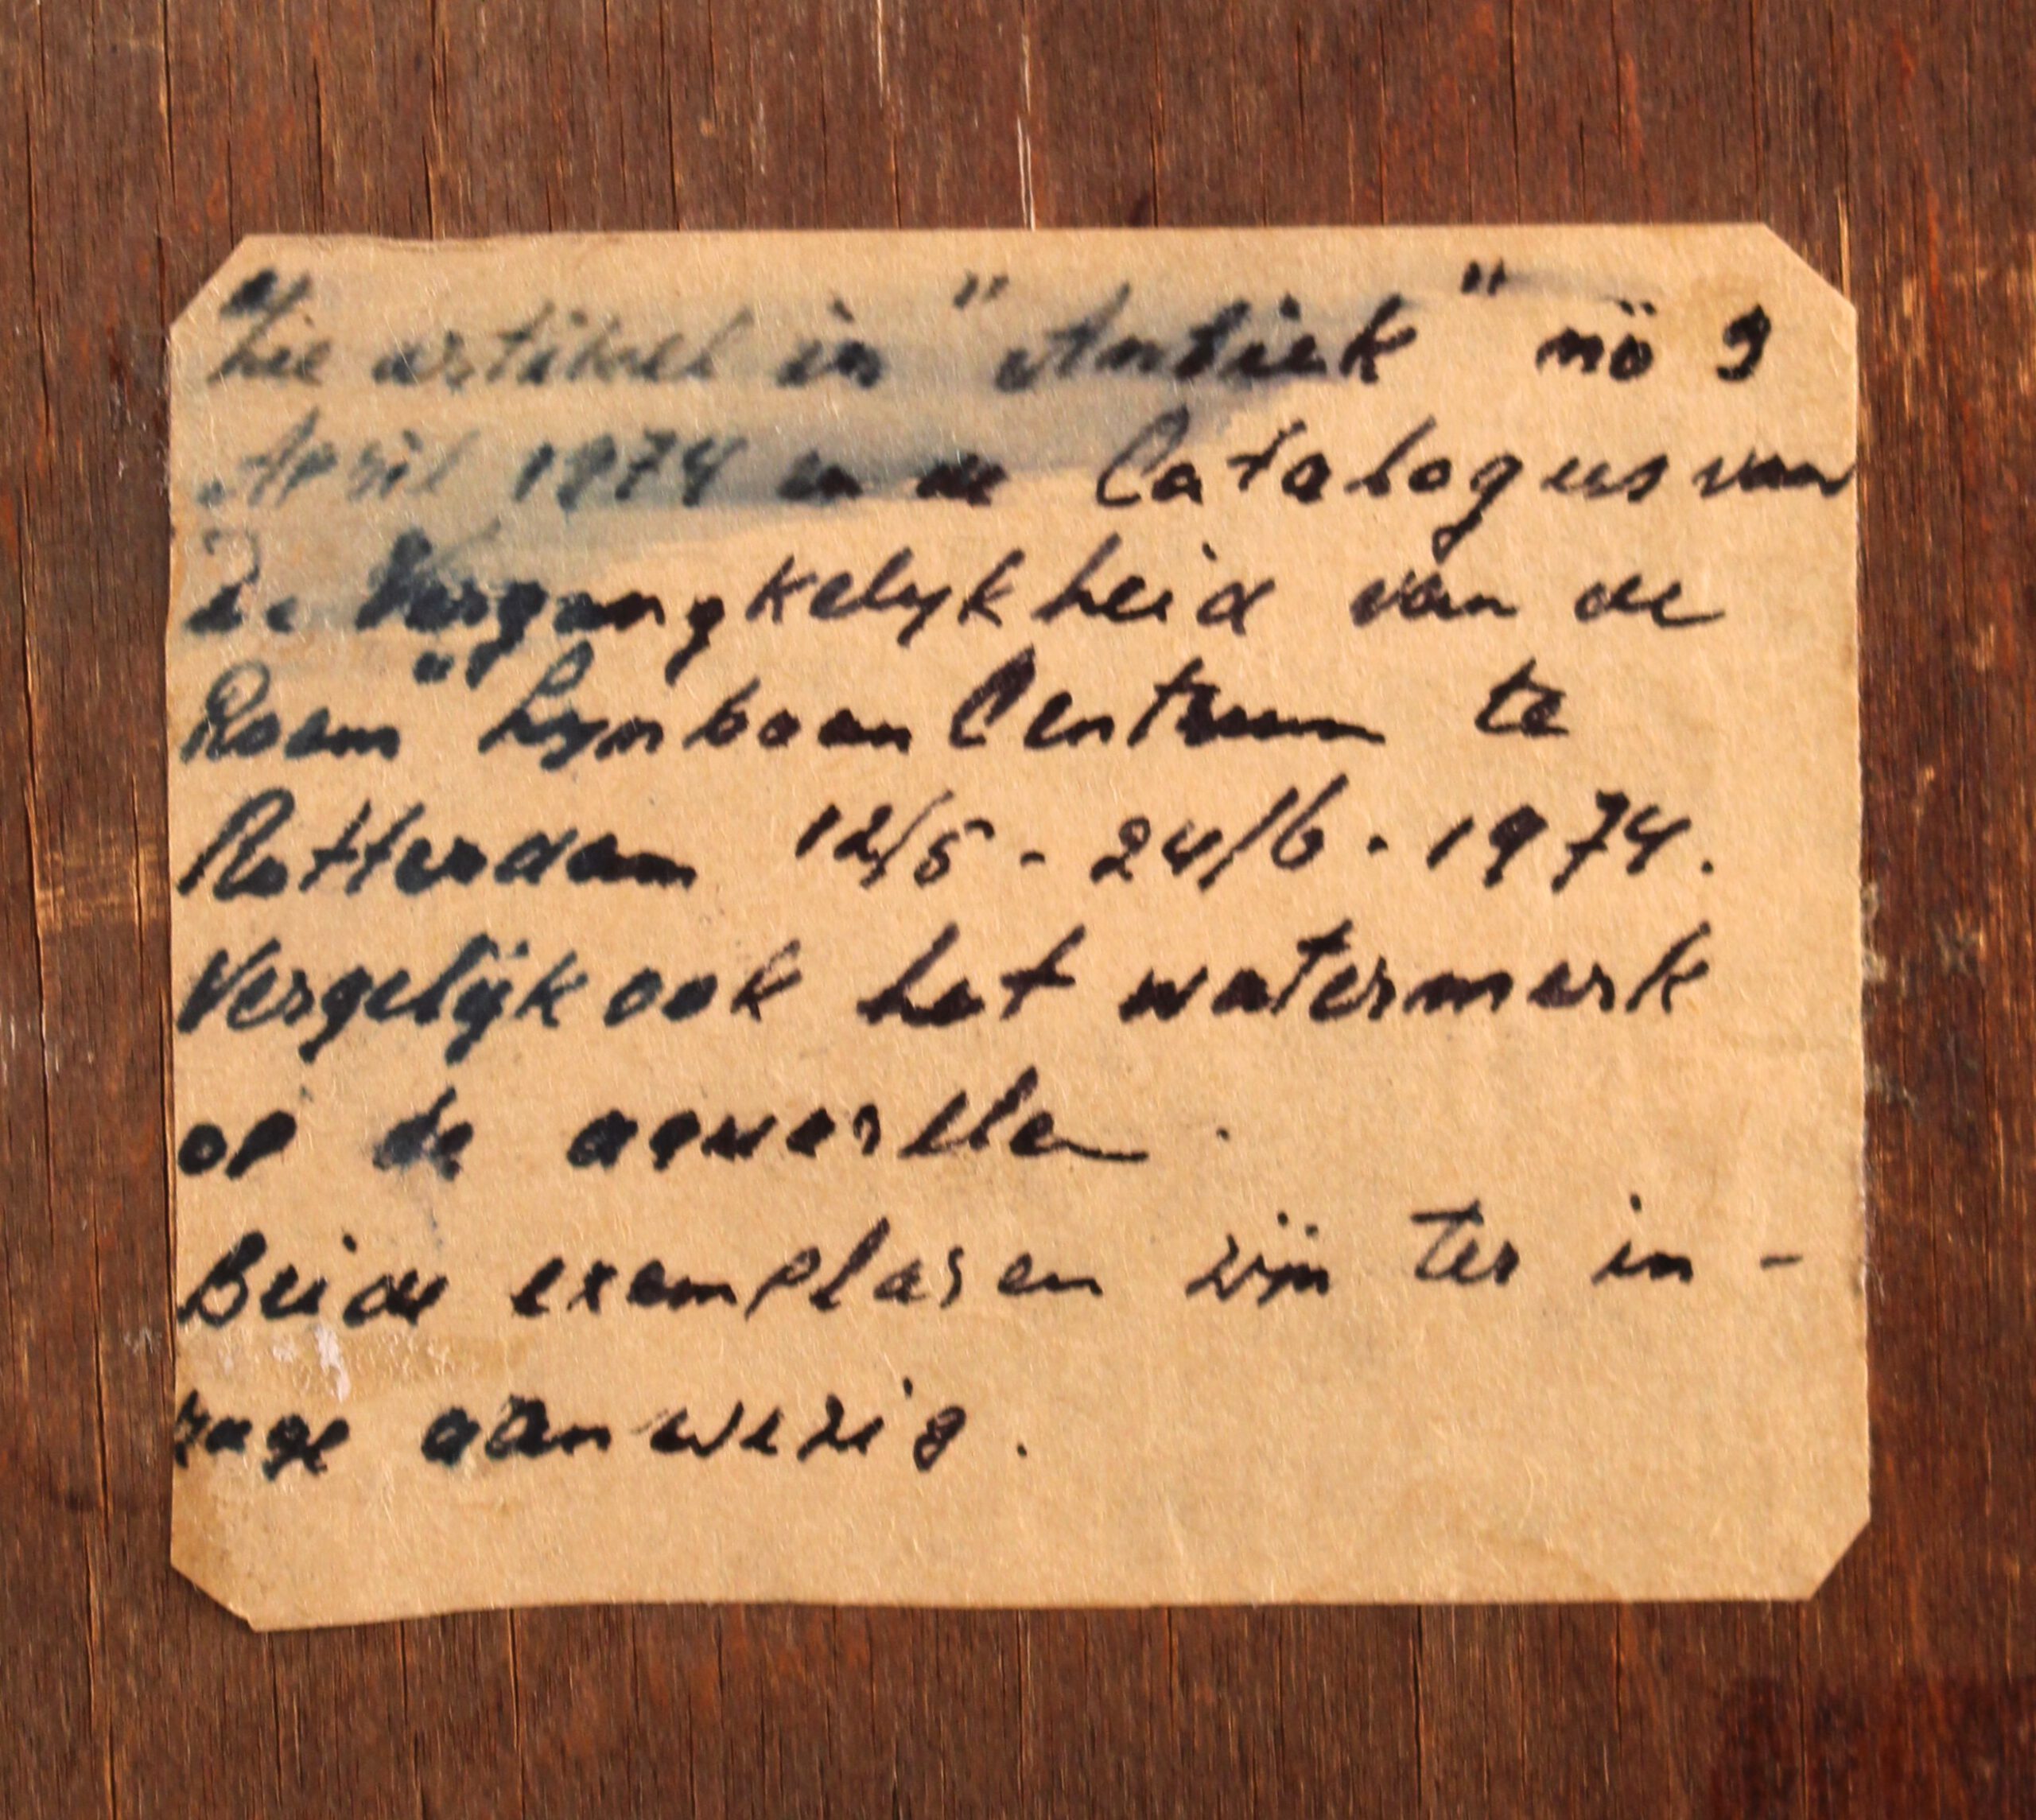 Zie artikel in "Antiek" no 9
April 1974 en de Catalogus van
De Vergangkelykheid van de
Roem" Lynbaan Centrum te
Rotterdam 12/5 - 24/6 - 1974.
Vergelijk ook het watermerk
op de aqwerellen.
Beide exemplaren zijn ter in-
zage aanwezig.